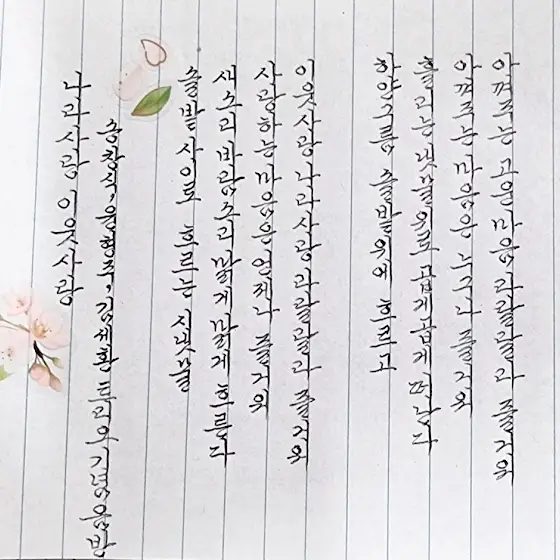 나라사랑 이웃사랑
송창식, 윤형주, 김세환 트리오 기념음반
솔밭 사이로 흐르는 시냇물
새소리 바람소리 맑게 맑게 흐른다
사랑하는 마음은 언제나 즐거워
이웃사랑 나라사랑 라랄랄라 즐거워
하얀구름 솔밭위에 흐르고
흘리는 냇물위로 곱게곱게 떠난다
아껴주는 마음은 누구나 즐거워
아껴주는 고운마음 라랄랄라 즐거워